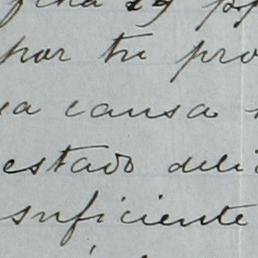 por tu pro
a causa
estado deli
suficiente